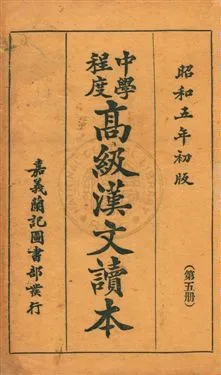 昭和五年初版
(第五册)
中學程度
高級漢文讀本
嘉義蘭記圖書部發行